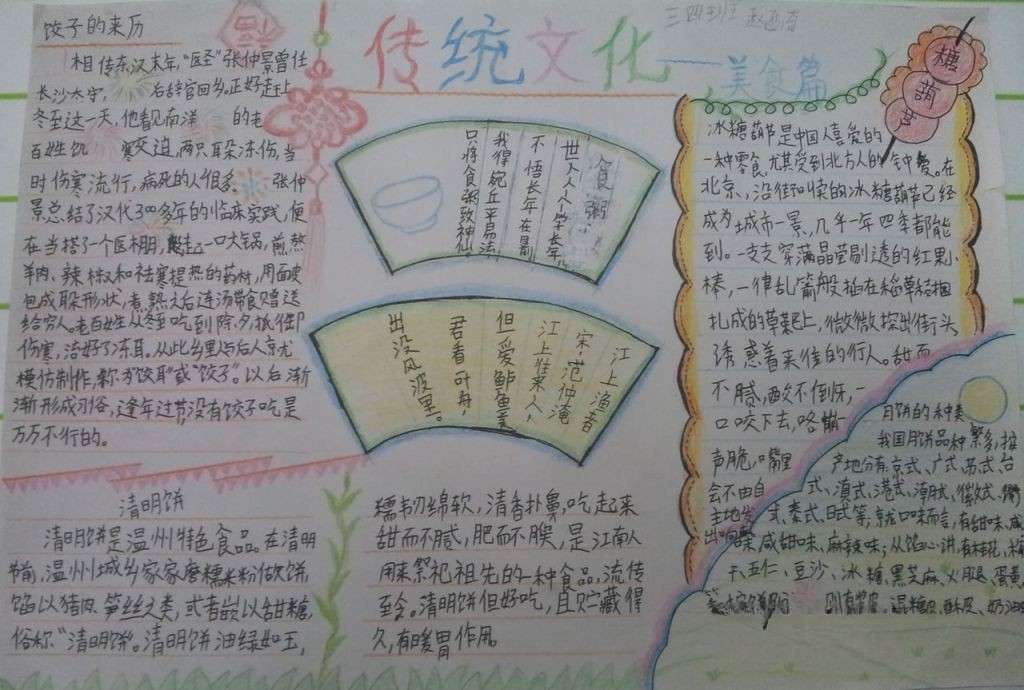 传统文化——美食篇
三四班
饺子的来历
相传东汉末年,“医圣”张仲景曾任
长沙太守, 后辞官回乡。正好走上
冬至这一天,他看见南洋 的老
百姓饥 寒交迫,两只耳朵冻伤,当
时伤寒流行,病死的人很多。 张仲
景总结了汉代300多年的临床实践,便
在当搭了一个医棚, 起一口大锅,煎熬
羊肉、辣椒和祛寒提热的药材,用面皮
包成耳朵形状,煮熟之后连汤带食赠送
给穷人。老百姓从冬至吃到除夕,抵御
伤寒,治好了冻耳。从此乡里与后人京尤
模仿制作,称为“饺耳”或“饺子”。以后渐
渐形成习俗,逢年过节没有饺子吃是
万万不行的。
食粥
世人人人学长年
不悟长年在目前
我得宛丘平易法
只将食粥致神仙
江上渔者
宋·范仲淹
江上往来人,
但爱鲈鱼美
君看一叶舟,
出没风波里。
糖葫芦
冰糖葫芦是中国人喜爱的
一种零食,尤其受到北方人的钟爱。在
北京、沿街叫卖的冰糖葫芦已经
成为城市一景,几乎一年四季都能
到。一支支穿满晶莹剔透的红果
棒,一律乱箭般插在稻草秸捆
扎成的草耙上,微微探出街头
诱惑着来往的行人。甜而
不腻,酸不倒呀,一
口咬下去,咯嘣一
声脆,嘴里
会不由自
主地发
出响
月饼的种类
我国月饼品种繁多,按
产地分有京式、广式、苏式、台
式、滇式、港式、潮式、徽式、衢
式、秦式、日式等,就口味而言,有甜味、咸
味、咸甜味、麻辣味;从馅心讲,有桂花、梅
干、五仁、豆沙、冰糖、黑芝麻、火腿、蛋黄
混糖皮、酥皮、奶油
清明饼
清明饼是温州特色食品。在清明
节前,温州城乡家家磨糯米粉做饼,
馅以猪肉、笋丝之类,或者嵌以甜糖,
俗称“清明饼”。清明饼油绿如玉,
糯韧绵软,清香扑鼻,吃起来
甜而不腻,肥而不腴,是江南人
用来祭祀祖先的一种食品,流传
至今。清明饼但好吃,且贮藏得
久,有暖胃作用。